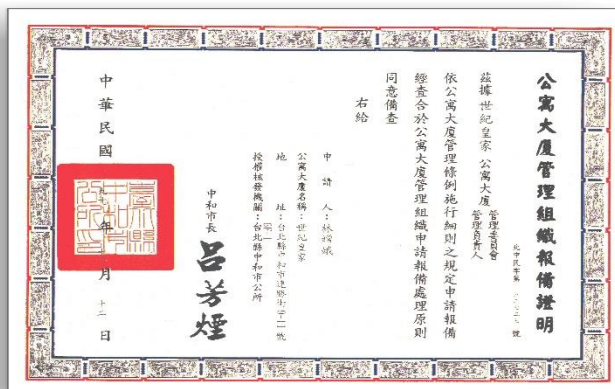 公寓大廈管理組織報備證明
北中民字第 號
茲據 世紀皇家 公寓大廈 管理委員會
管理負責人
依公寓大廈管理條例施行細則之規定申請報備
經查合於公寓大廈管理組織申請報備處理原則
同意備查
右給
申請人：林嫦娥
公寓大廈名稱：世紀皇家
地址：台北縣中和市連勝街 號
授權核發機關：台北縣中和市公所
中和市長 呂芳煙
中華民國 年 月 十二 日